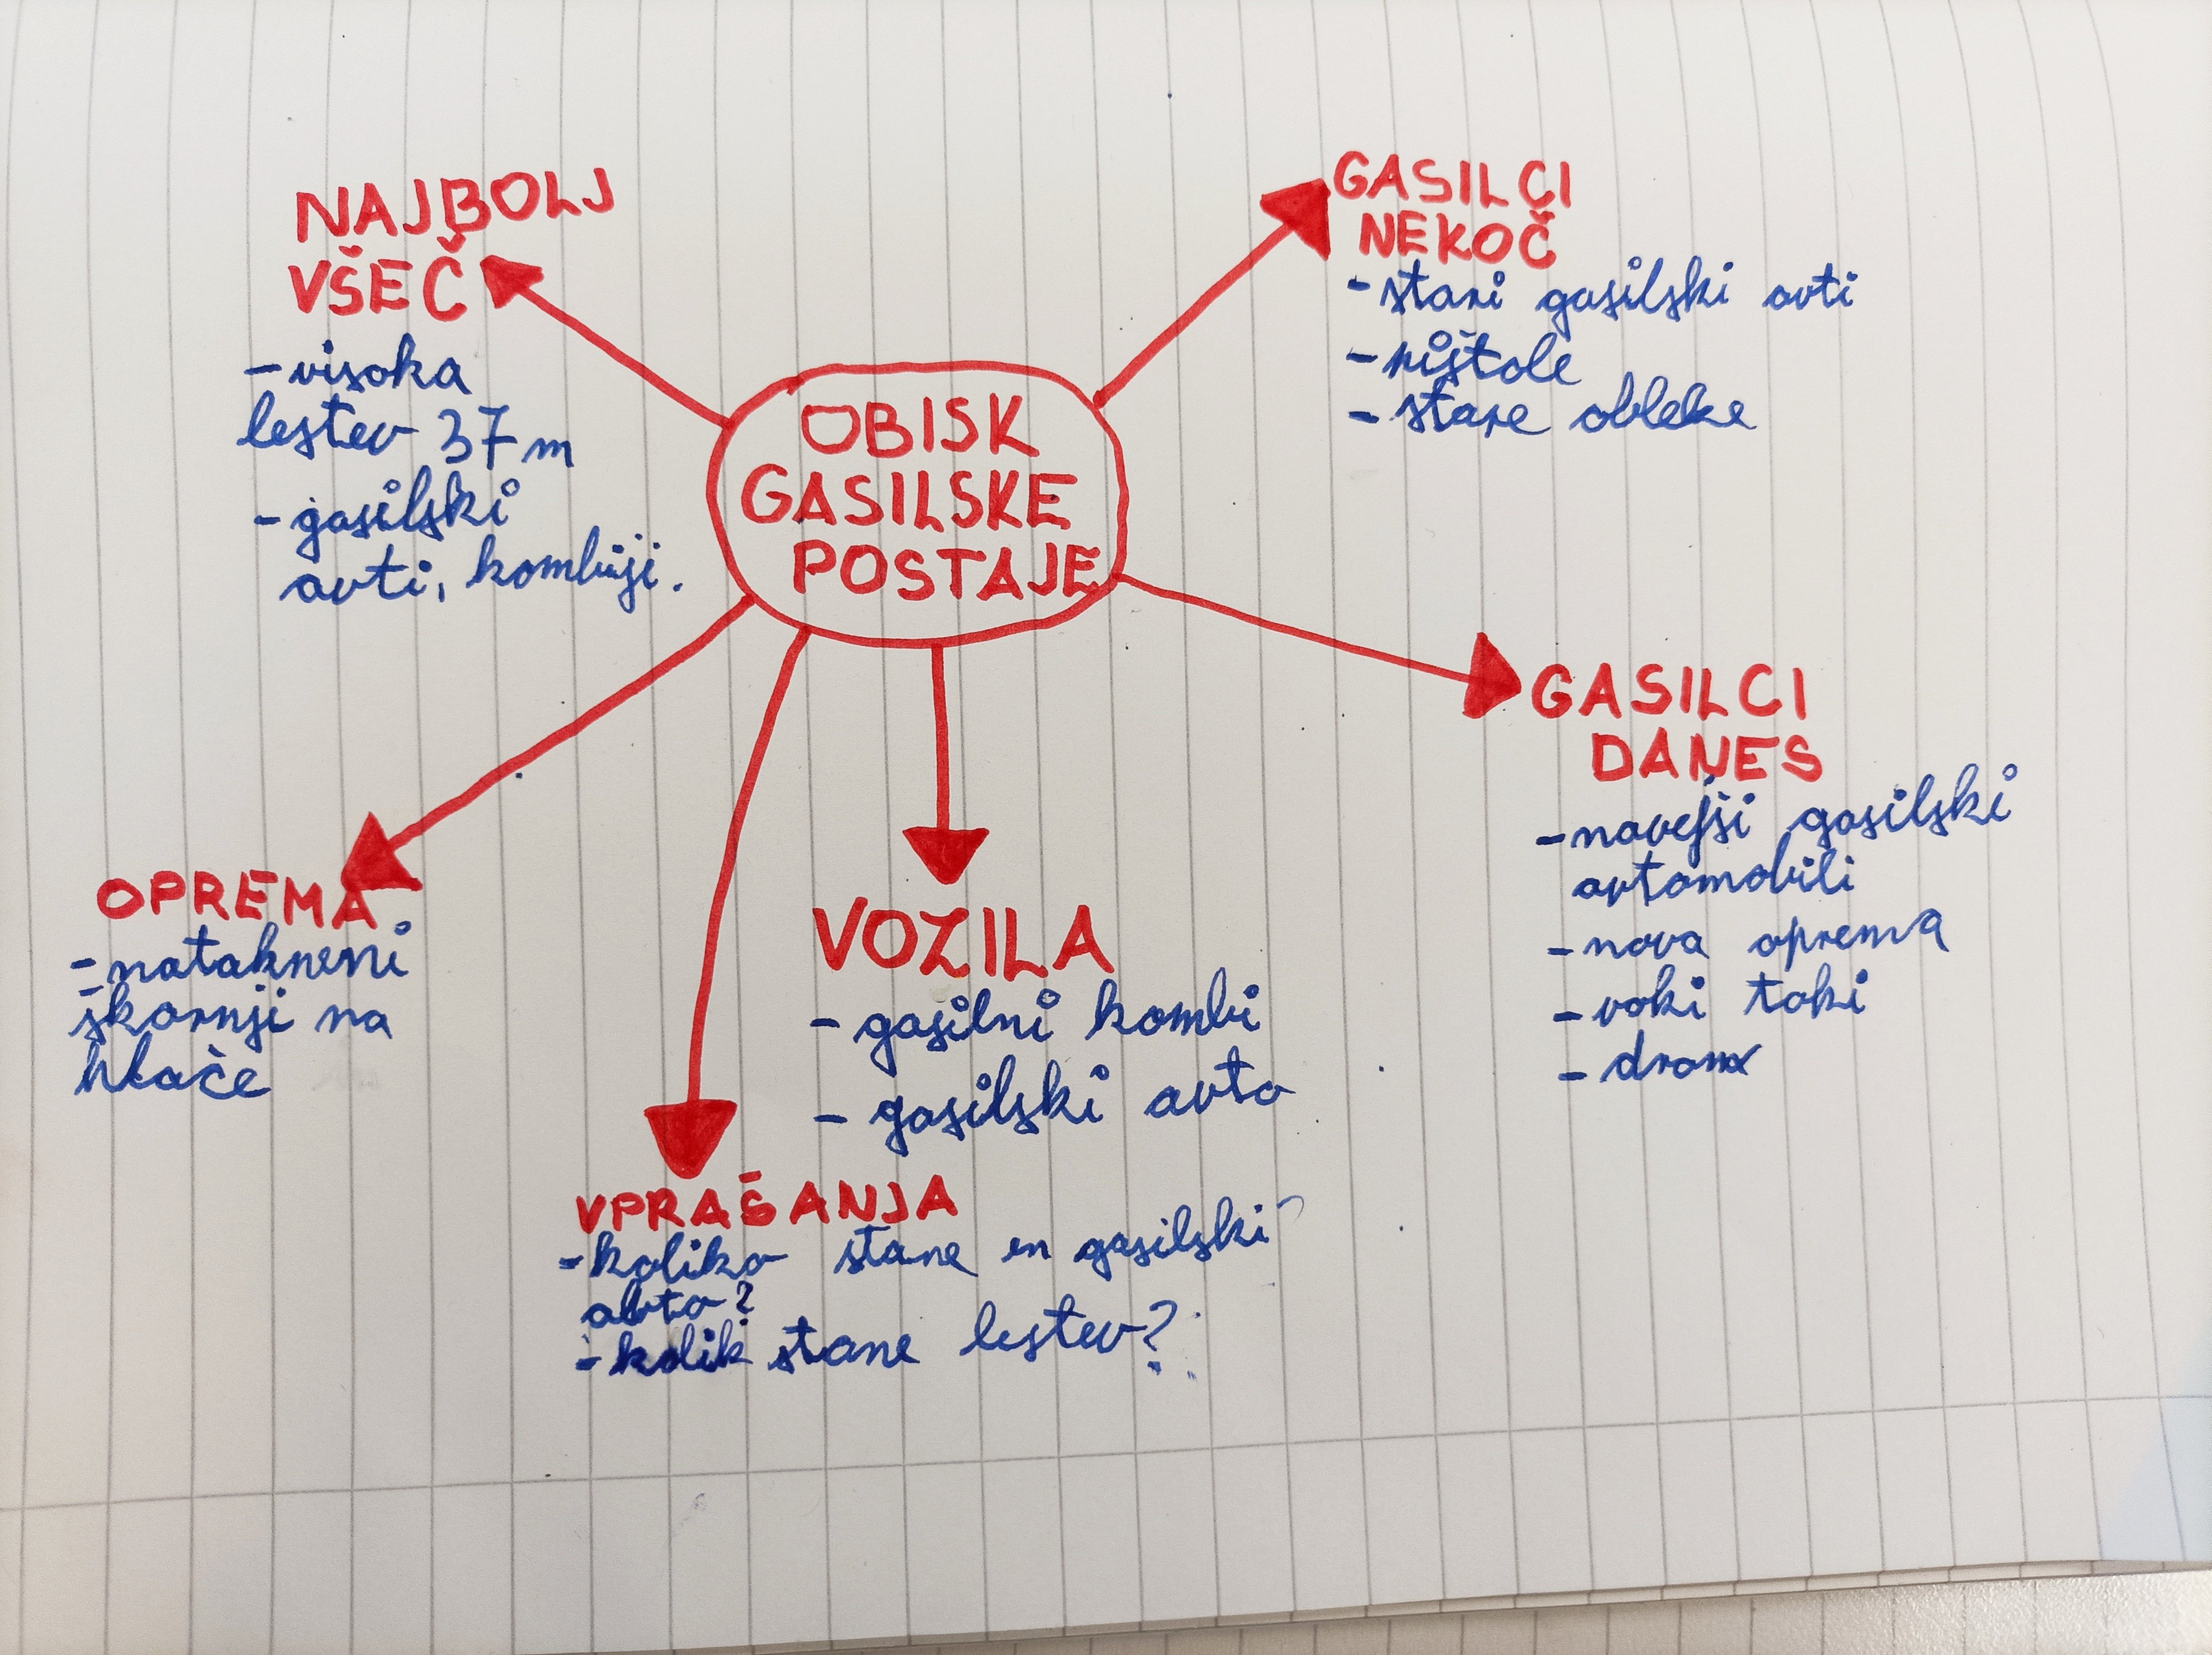 OBISK
GASILSKE
POSTAJE
NAJBOLJ
VŠEČ
-visoka
lestev 37 m
-gasilski
avti, kombiji.
GASILCI
NEKOČ
-stari gasilski avti
-pištole
-stare obleke
GASILCI
DANES
-novejši gasilski
avtomobili
-nova oprema
-voki toki
-dron
VOZILA
-gasilni kombi
-gasilski avto
VPRAŠANJA
-koliko stane en gasilski
avto?
-kolik stane lestev?
OPREMA
-natakneni
škornji na
hlače